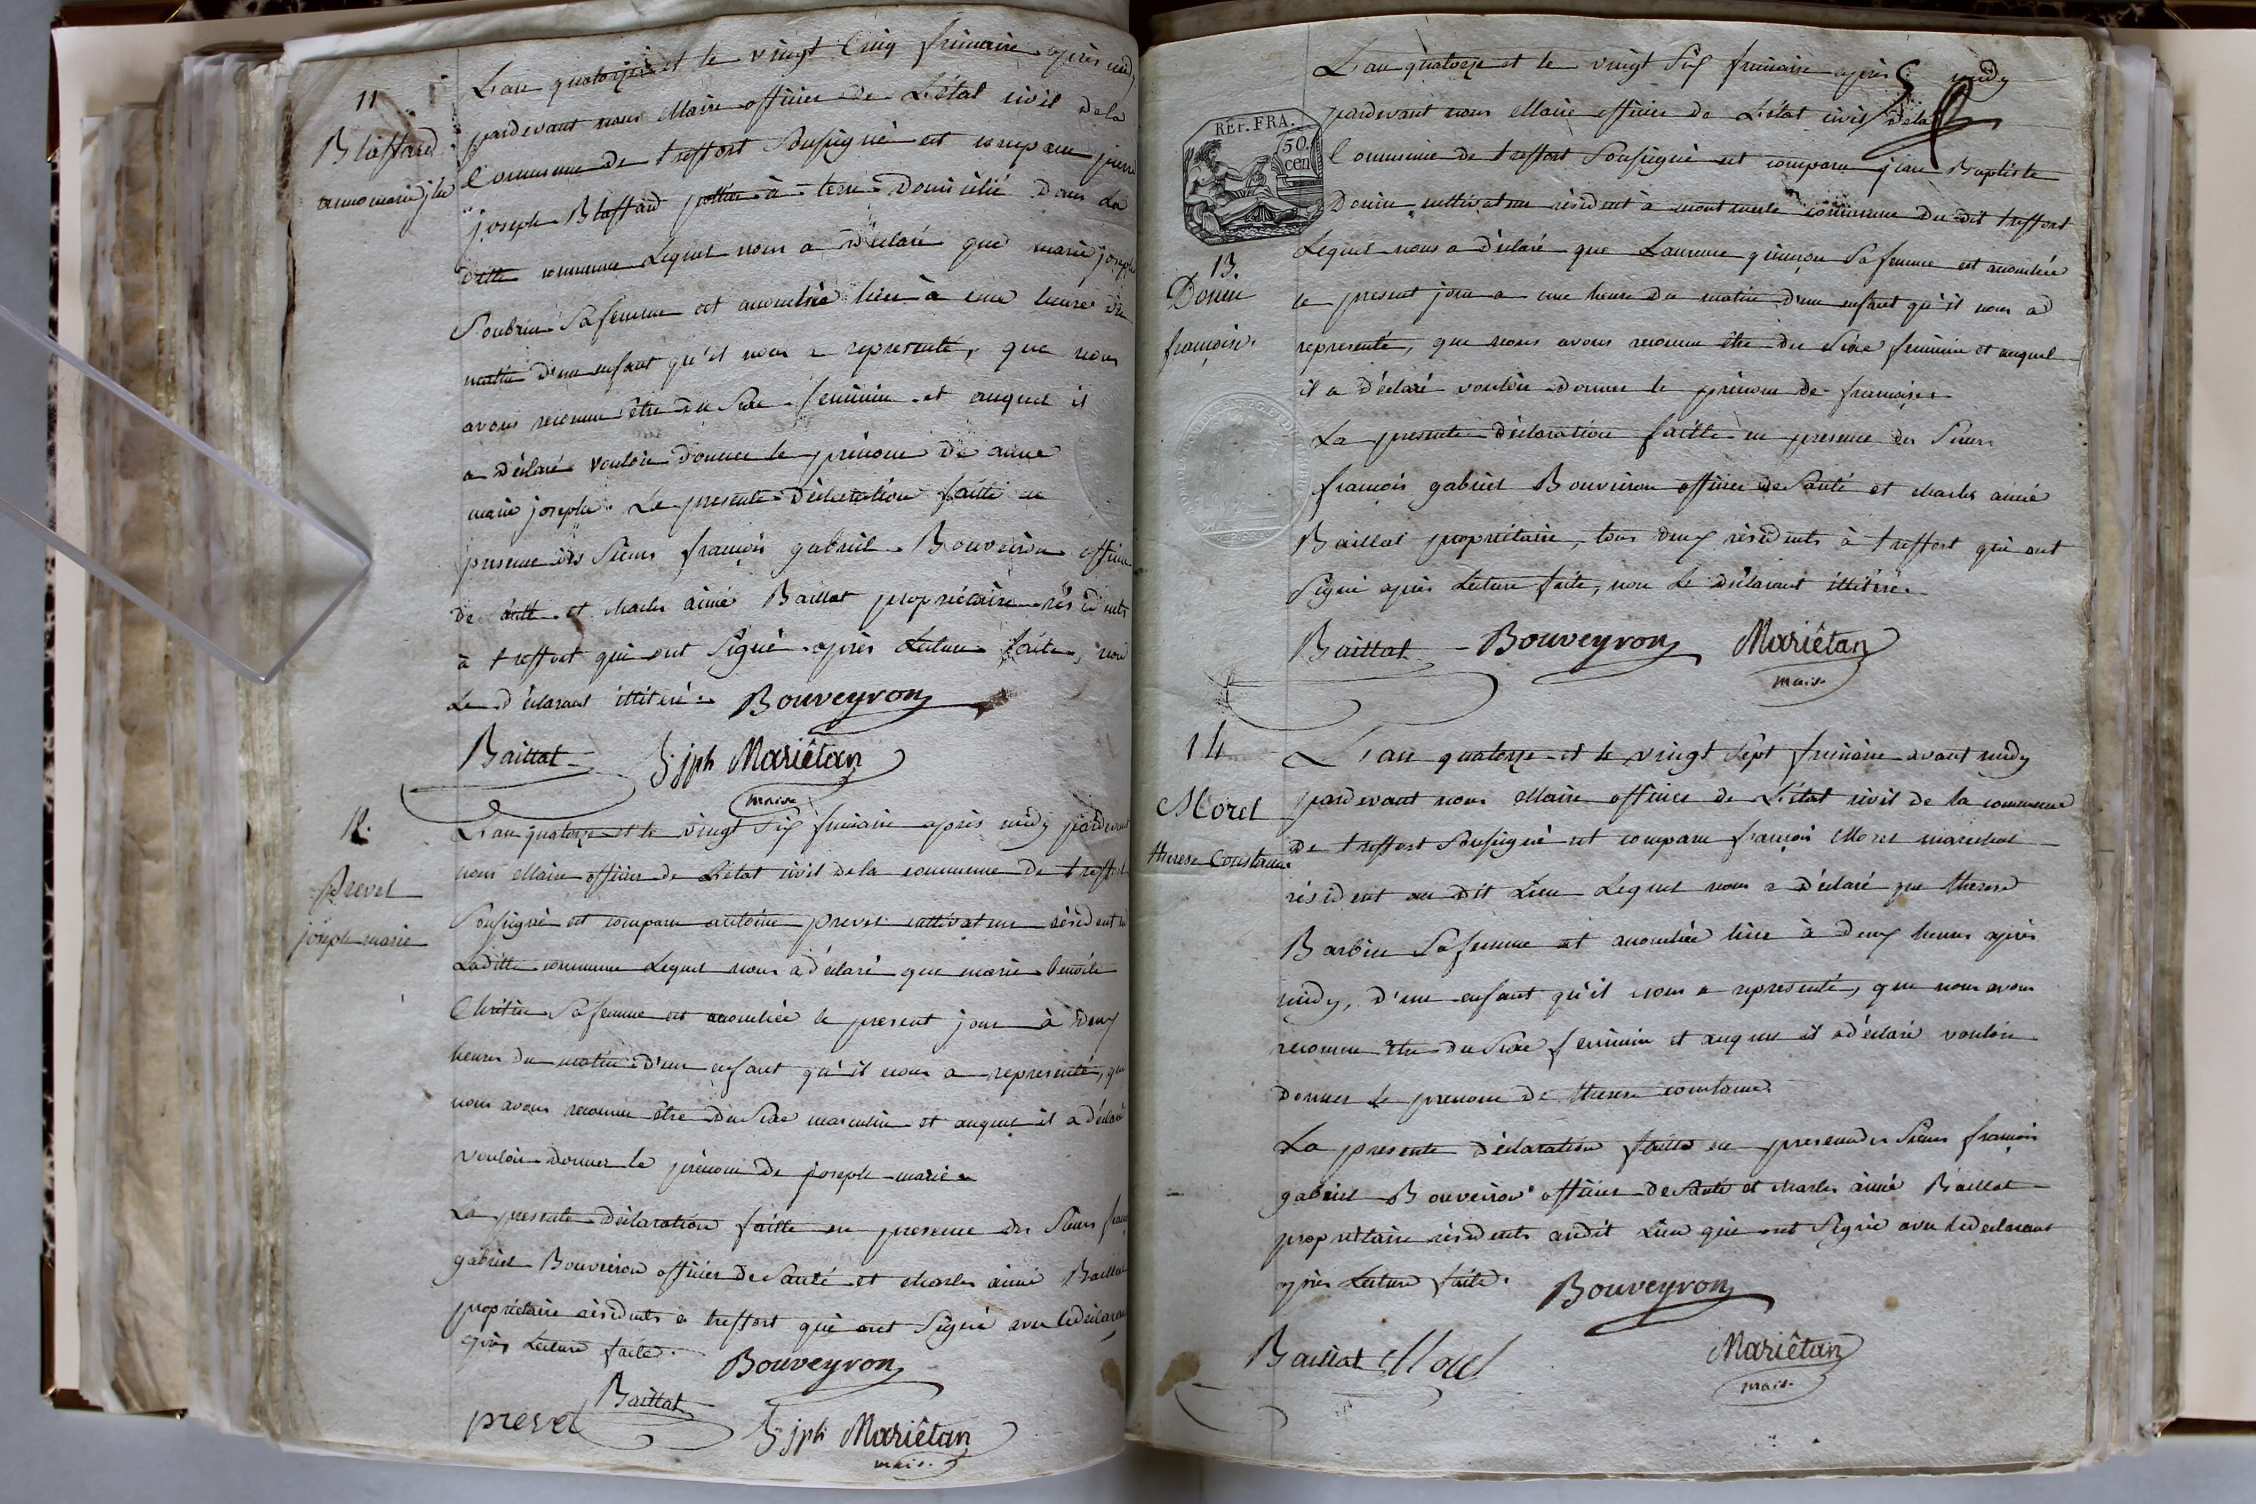 11
Blaffard
anne marie jphe
L'an quatorze et le vingt Cinq frimaire après midy
pardevant nous Maire officier de L'état civil dela
Commune de treffort Soussigné est comparu pierre
joseph Blaffard pottier à terre Domicilié Dans La
ditte commune Lequel nous a déclaré que marie joseph
Soubrin Sa femme est accouchée hier à une heure du
matin d'un enfant qu'il nous a representé, que nous
avons reconnu être du Sexe feminin et auquel il
a déclaré vouloir donner le prénom de anne
marie josephe. La presente déclaration faitte en
presence des Sieurs françois gabriel Bouveiron officier
de santé et charles aimé Baillat propriétaire résidents
à treffort qui ont Signé après Lecture faite, non
Le déclarant illitéré.
Bouveyron
Baillat
jph Mariêtan
maire
12.
Prevel
joseph marie
L'an quatorze et le vingt Six frimaire après midy pardevant
nous Maire officier de L'état civil dela commune de treffort
Soussigné est comparu antoine prevel cultivateur résident en
Laditte commune Lequel nous a déclaré que marie benoite
Chrétin Sa femme est accouchée le present jour à deux
heures du matin d'un enfant qu'il nous a representé, que
nous avons reconnu être du Sexe masculin et auquel il a déclaré
vouloir donner le prénom de joseph marie
La presente déclaration faitte en presence des Sieurs françois
gabriel Bouveiron officier de Santé et charles aimé Baillat
propriétaire résidents à treffort qui ont Signé avec le déclarant
après Lecture faite.
Bouveyron
Baillat
prevel
jph Mariêtan
maire
REP. FRA.
50.
cen
13.
Donin
françoise.
L'an quatorze et le vingt Six frimaire après midy
pardevant nous Maire officier de L'état civil dela
Commune de treffort Soussigné est comparu jean Baptiste
Donin cultivateur résident à montmerle commune du dit treffort
Lequel nous a déclaré que Laurence guinçon Sa femme est accouchée
le present jour a une heure du matin d'un enfant qu'il nous a
representé, que nous avons reconnu être du Sexe feminin et auquel
il a déclaré vouloir donner le prénom de françoise
La presente déclaration faitte en presence des Sieurs
françois gabriel Bouveiron officier de Santé et charles aimé
Baillat propriétaire, tous deux résidents à treffort qui ont
Signé après Lecture faite, non Le déclarant illitéré.
Baillat
Bouveyron
Mariêtan
maire
14
Morel
therese Constance
L'an quatorze et le vingt Sept frimaire avant midy
pardevant nous Maire officier de L'état civil de la commune
de treffort Soussigné est comparu françois Morel marechal
résident au dit Lieu Lequel nous a déclaré que therese
Barbin Sa femme est accouchée hier à deux heures après
midy, d'un enfant qu'il nous a representé, que nous avons
reconnu être du Sexe feminin et auquel il a déclaré vouloir
donner le prenom de therese constance.
La presente déclaration faitte en presence des Sieurs françois
gabriel Bouveiron officier de Santé et charles aimé Baillat
propriétaire résidents audit Lieu qui ont Signé avec le déclarant
après Lecture faite.
Bouveyron
Baillat
Morel
Mariêtan
maire